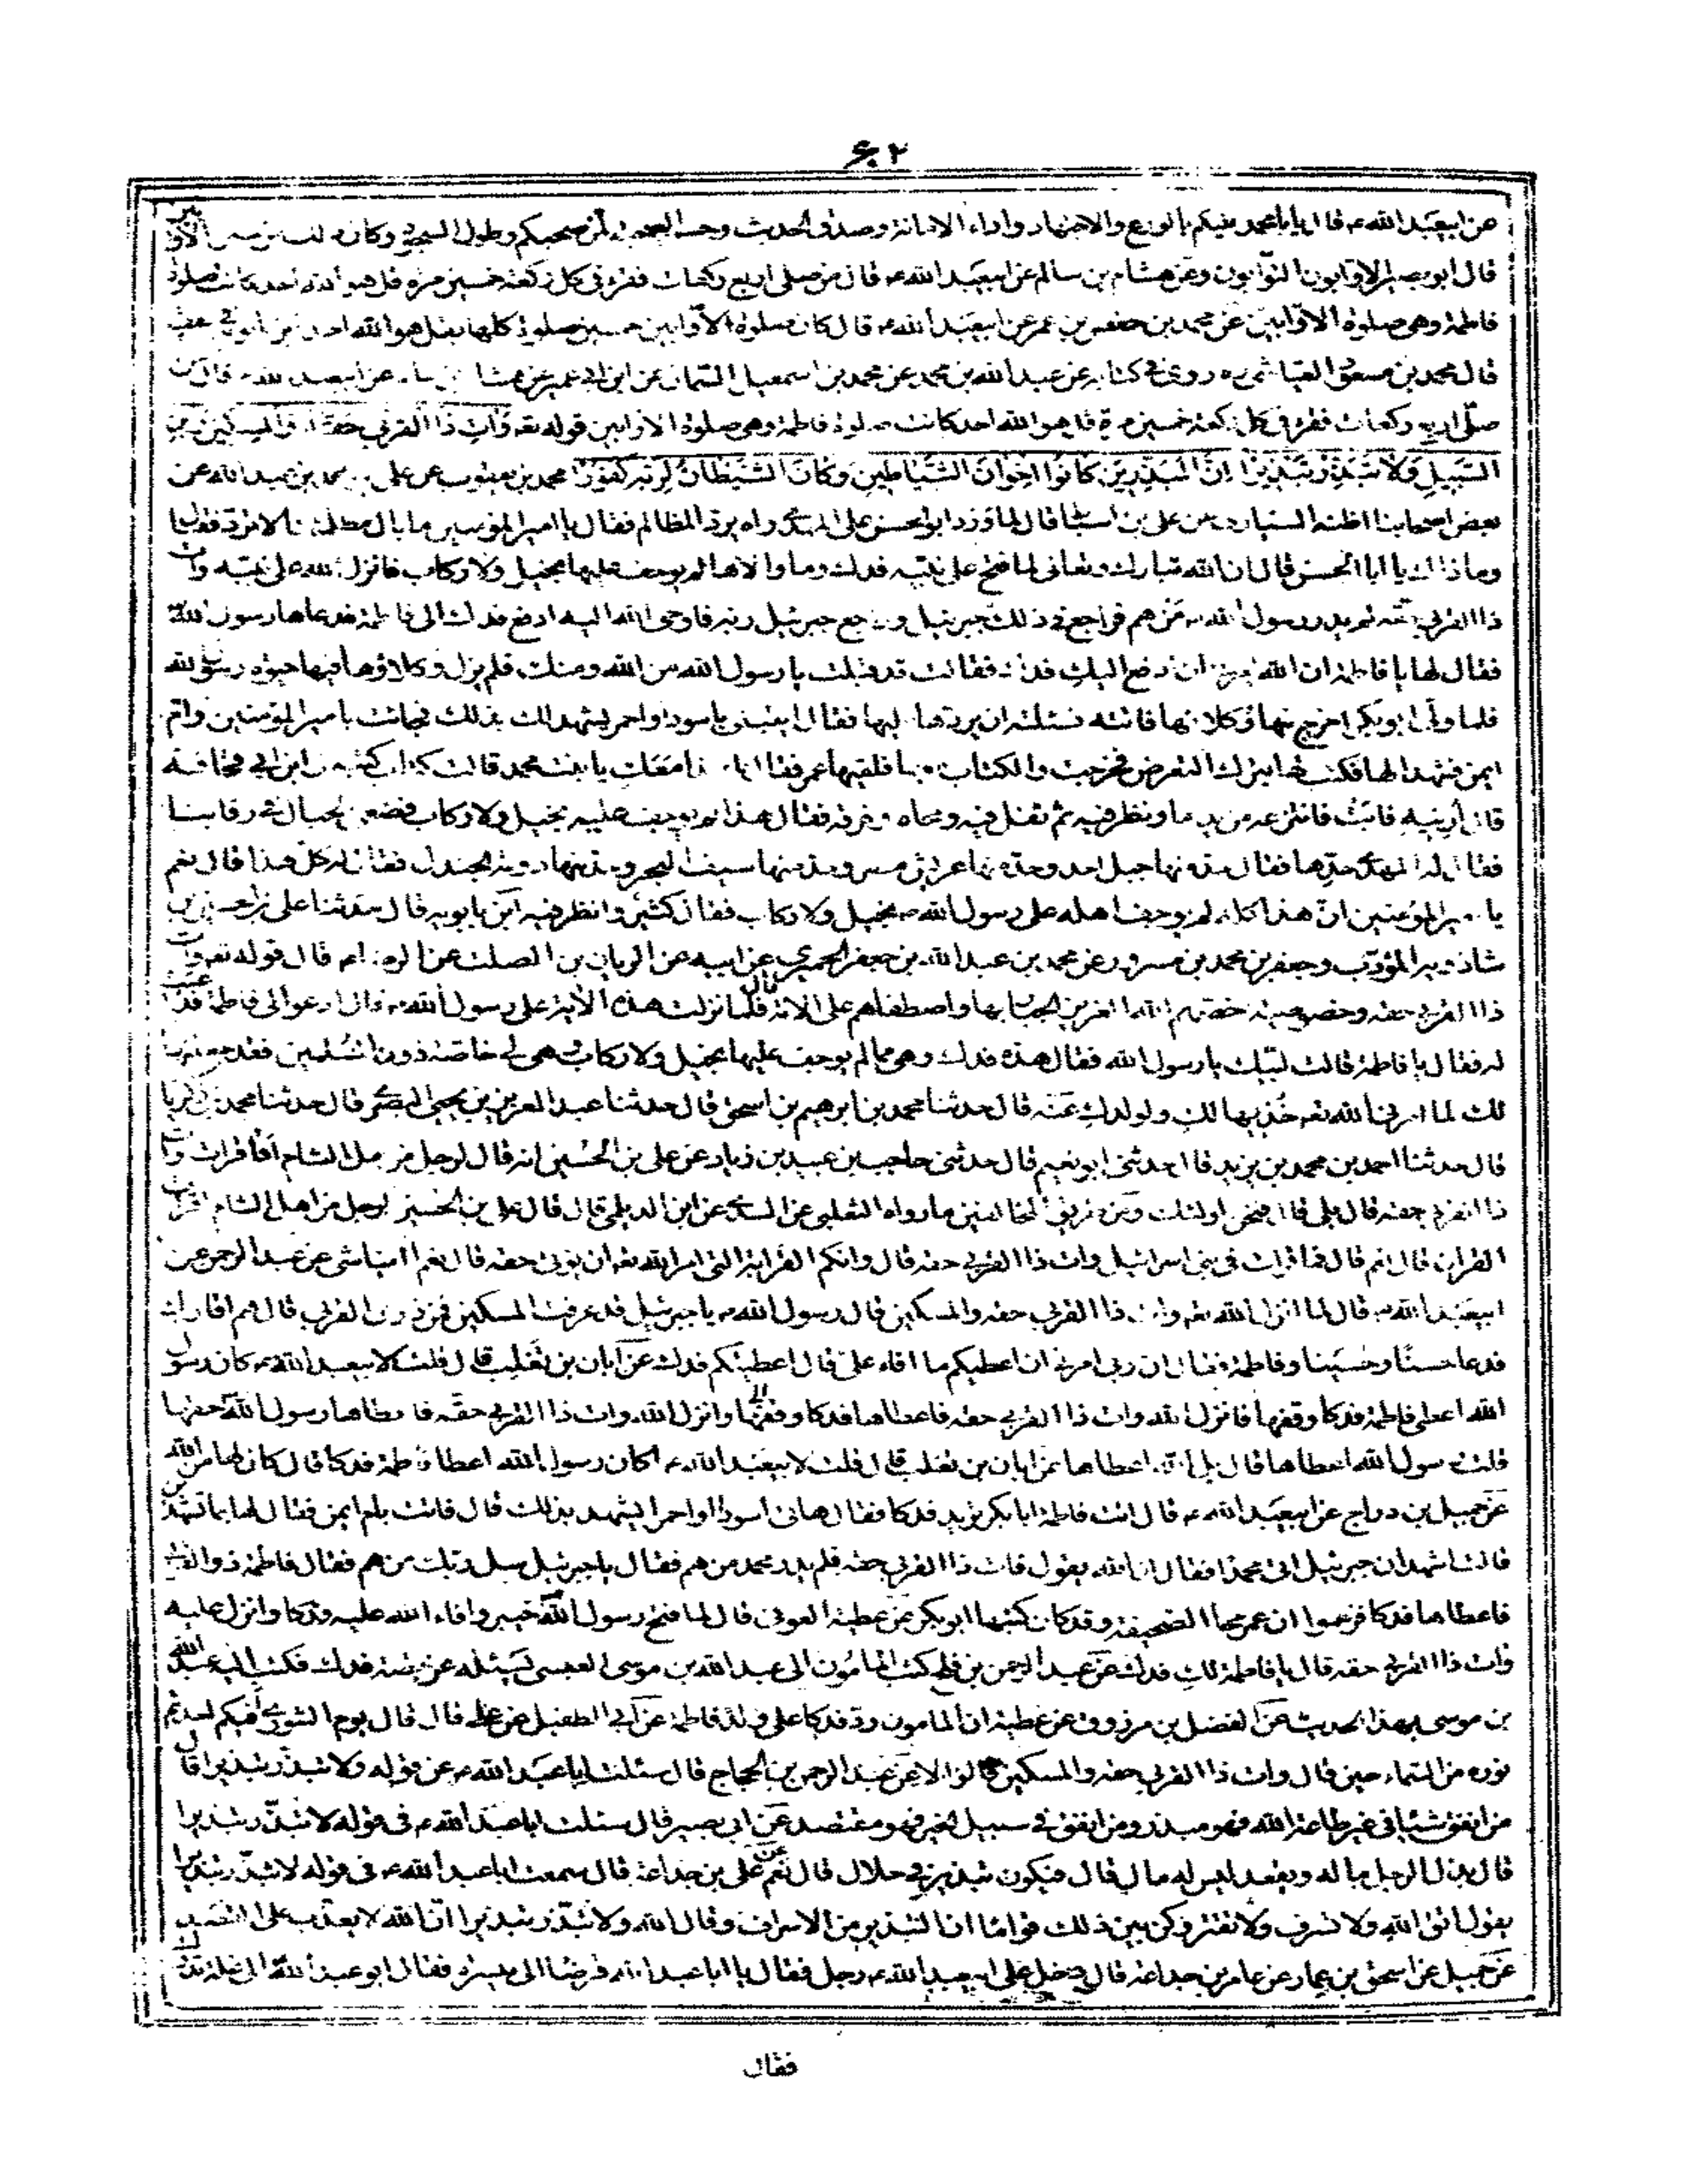 عن ابيعبد الله ع قال يا بامحمد عليكم بالورع والاجتهاد واداء الامانة وصدق الحديث وحسن الصحبة لمن صحبكم وطول السجود وكان ذلك من سنن الاوابين
قال ابو بصير الاوابون التوابون وعن هشام بن سالم عن ابيعبد الله ع قال من صلى اربع ركعات فقرء في كل ركعة خمسين مرة قل هو الله احد كانت صلوة
فاطمة وهى صلوة الاوابين عن محمد بن حفص بن عمر عن ابيعبد الله ع قال كان صلوة الاوابين خمسين صلوة كلها بقل هو الله احد
قال محمد بن مسعود العياشى ره روى في كتابه عن عبد الله بن محمد عن محمد بن اسمعيل السمان عن ابن ابي عمير عن هشام بن سالم عن ابيعبد الله ع قال من
صلى اربع ركعات فقرء في كل ركعة خمسين مرة قل هو الله احد كانت صلوة فاطمة وهى صلوة الاوابين قوله تعـ وَآتِ ذَا الْقُرْبى حَقَّهُ وَالْمِسْكِينَ وَابْنَ
السَّبِيلِ وَلَا تُبَذِّرْ تَبْذِيرًا اِنَّ الْمُبَذِّرِينَ كَانُوا اِخْوَانَ الشَّيَاطِينِ وَكَانَ الشَّيْطَانُ لِرَبِّهِ كَفُورًا محمد بن يعقوب عن على بن محمد بن عبد الله عن
بعض اصحابنا اظنه السيارى عن على بن اسباط قال لما ورد ابو الحسن على المهدى راه يرد المظالم فقال يا امير المؤمنين ما بال مظلمتنا لا ترد فقال له
وما ذاك يا ابا الحسن قال ان الله تبارك وتعالى لما فتح على نبيه فدك وما والاها لم يوجف عليها بخيل ولا ركاب فانزل الله على نبيه وات
ذا القربى حقه فلم يدر رسول الله ص من هم فراجع في ذلك جبرئيل وراجع جبرئيل ربه فاوحى الله اليه ادفع فدك الى فاطمة فدعاها رسول الله
فقال لها يا فاطمة ان الله امرنى ان ادفع اليك فدك فقالت قد قبلت يا رسول الله من الله ومنك فلم يزل وكلاؤها فيها حيوة رسول الله
فلما ولى ابو بكر اخرج عنها وكلائها فاتته فسئلته ان يردها اليها فقال ايتينى باسود او احمر يشهد لك بذلك فجائت بامير المؤمنين وام
ايمن فشهدا لها فكتب لها بترك التعرض فخرجت والكتاب معها فلقيها عمر فقال ما هذا معك يا بنت محمد قالت كتاب كتبه لى ابن ابي قحافة
قال ارينيه فابت فانتزعه من يدها ونظر فيه ثم تفل فيه ومحاه وخرقه فقال هذا لم يوجف عليه بخيل ولا ركاب فضعى الحبال في رقابنا
فقال له المهدى حدها فقال حد منها جبل احد وحد منها عريش مصر وحد منها سيف البحر وحد منها دومة الجندل فقال له كل هذا قال نعم
يا امير المؤمنين ان هذا كله لم يوجف اهله على رسول الله ص بخيل ولا ركاب فقال كثير وانظر فيه ابن بابويه قال حدثنا على بن الحسين بن
شاذويه المؤدب وجعفر بن محمد بن مسرور عن محمد بن عبد الله بن جعفر الحميرى عن ابيه عن الريان بن الصلت عن الرضا ع قال قوله تعـ وات
ذا القربى حقه وخصوصية خصهم الله العزيز الجبار بها واصطفاهم على الامة فلما نزلت هذه الاية على رسول الله ص قال ادعوا لى فاطمة فدعيت
له فقال يا فاطمة قالت لبيك يا رسول الله فقال هذه فدك وهى مما لم يوجف عليها بخيل ولا ركاب هى لى خاصة دون المسلمين فقد جعلتها
لك لما امرنى الله تعـ فخذيها لك ولولدك عنه قال حدثنا محمد بن ابرهيم بن اسحق قال حدثنا عبد العزيز بن يحيى البصرى قال حدثنا محمد بن زكريا
قال حدثنا احمد بن محمد بن يزيد قال حدثنى ابو نعيم قال حدثنى حاجب بن عبيد بن زياد عن على بن الحسين انه قال لرجل من اهل الشام اما قرات وات
ذا القربى حقه قال بلى قال فنحن اولئك ومن طريق المخالفين ما رواه الثعلبى عن السدى عن ابن الديلمى قال قال على بن الحسين لرجل من اهل الشام اقرات
القران قال نعم قال فما قرات في بنى اسرائيل وات ذا القربى حقه قال وانكم القرابة التى امر الله تعـ ان يوتى حقه قال نعم العياشى عن عبد الرحمن عن
ابيعبد الله ع قال لما انزل الله تعـ وات ذا القربى حقه والمسكين قال رسول الله ص يا جبرئيل قد عرفت المسكين فمن ذوى القربى قال هم اقاربك
فدعا حسنا وحسينا وفاطمة فقال ان ربى امرنى ان اعطيكم ما افاء على قال اعطيتكم فدك عن ابان بن تغلب قال قلت لابيعبد الله ع كان رسول
الله اعطى فاطمة فدكا قال وقفها فانزل الله وات ذا القربى حقه فاعطاها رسول الله حقها
قلت رسول الله اعطاها قال بل الله اعطاها عن ابان بن تغلب قال قلت لابيعبد الله ع اكان رسول الله اعطا فاطمة فدكا قال كان لها من الله
عن جميل بن دراج عن ابيعبد الله ع قال اتت فاطمة ابا بكر تريد فدكا فقال هاتى اسودا او احمر يشهد بذلك قال فاتت بام ايمن فقال لها بما تشهدين
قالت اشهد ان جبرئيل اتى محمدا فقال ان الله يقول فات ذا القربى حقه فلم يدر محمد من هم فقال يا جبرئيل سل ربك من هم فقال فاطمة ذو القربى
فاعطاها فدكا فزعموا ان عمر محا الصحيفة وقد كان كتبها ابو بكر عن عطية العوفى قال لما فتح رسول الله خيبر وافاء الله عليه فدكا وانزل عليه
وات ذا القربى حقه قال يا فاطمة لك فدك عن عبد الرحمن بن فلح كتب المامون الى عبد الله بن موسى العبسى يسئله عن قصة فدك فكتب اليه عبد الله
بن موسى بهذا الحديث عن الفضل بن مرزوق عن عطية ان المامون رد فدكا على ولد فاطمة عن ابي الطفيل عن على قال قال يوم الشورى افيكم احد تم
نوره من السماء حين قال وات ذا القربى حقه والمسكين قالوا لا عن عبد الرحمن بن الحجاج قال سئلت ابا عبد الله ع عن قوله ولا تبذر تبذيرا قال
من انفق شيئا في غير طاعة الله فهو مبذر ومن انفق في سبيل الخير فهو مقتصد عن ابي بصير قال سئلت ابا عبد الله ع في قوله لا تبذر تبذيرا
قال بذل الرجل ماله ويقعد ليس له مال قال فيكون تبذير في حلال قال نعم عن على بن جداعة قال سمعت ابا عبد الله ع في قوله لا تبذر تبذيرا
يقول اتق الله ولا تسرف ولا تقتر وكن بين ذلك قواما ان التبذير من الاسراف وقال الله ولا تبذر تبذيرا ان الله لا يعذب على القصد
عن جميل عن اسحق بن عمار عن عامر بن جداعة قال دخل على ابيعبد الله ع رجل فقال يا ابا عبد الله قرضا الى ميسرة فقال ابو عبد الله الى غلة تدرك
فقال